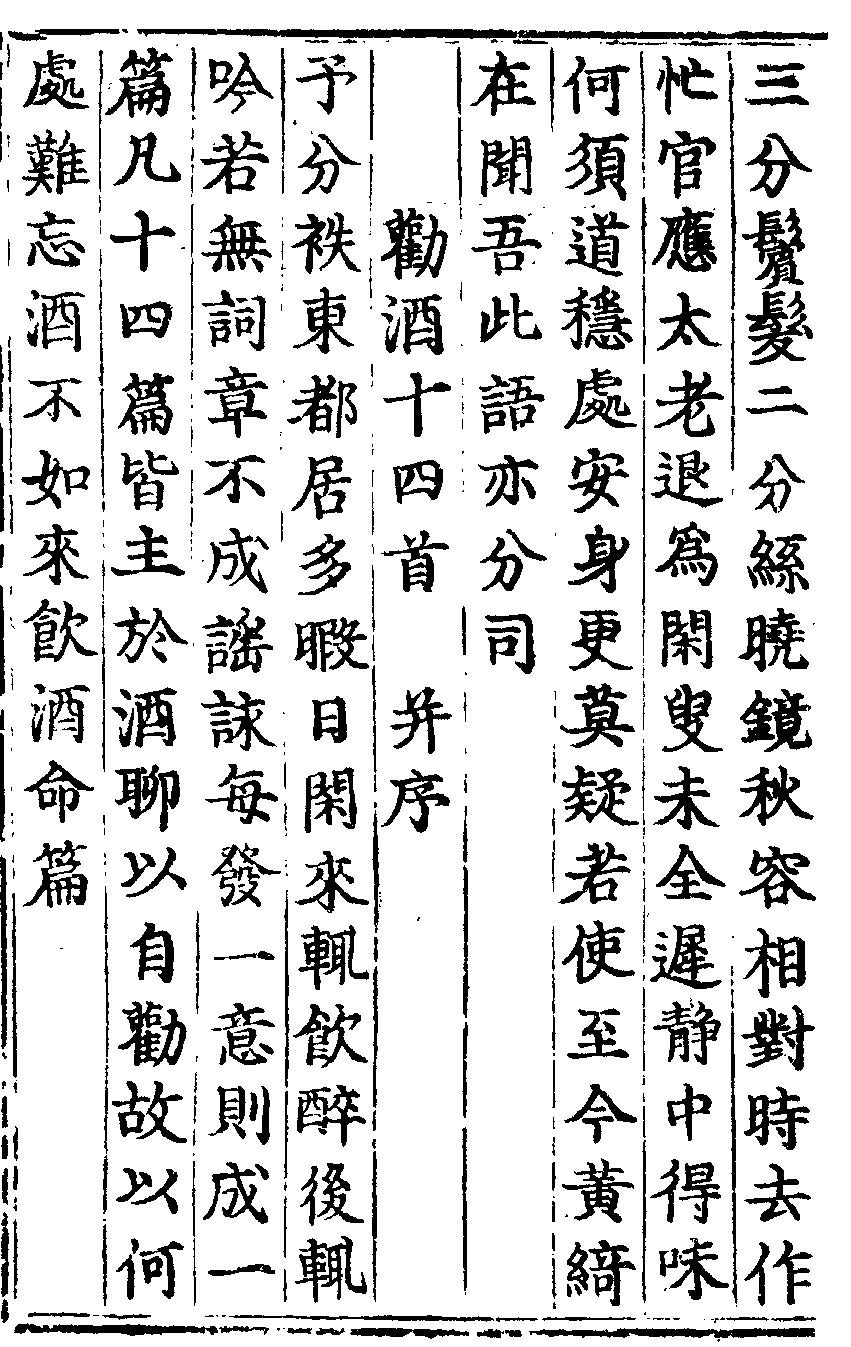 三分鬢髮二分絲曉鏡秋容相對時去作
忙官應太老退爲閑叟未全遲静中得味
何須道穩處安身更莫疑若使至今黃綺
在聞吾此語亦分司
勸酒十四首　并序
予分袟東都居多暇日閑來輒飲醉後輒
吟若無詞章不成謡詠每發一意則成一
篇凡十四篇皆主於酒聊以自勸故以何
處難忘酒不如來飲酒命篇